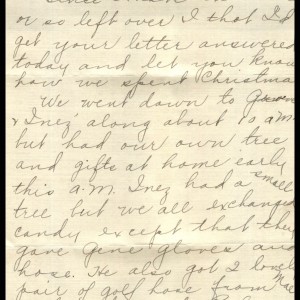 or so left over I that I'd
get your letter answered
today and let you know
how we spent Christma
We went down to
& Inez' along about 10 a.m.
but had our own tree
and gifts at home early
this a.m. Inez had a small
tree but we all exchanged
candy except that they
gave Gene gloves and
hose. He also got 1 lovely
pair of golf hose from